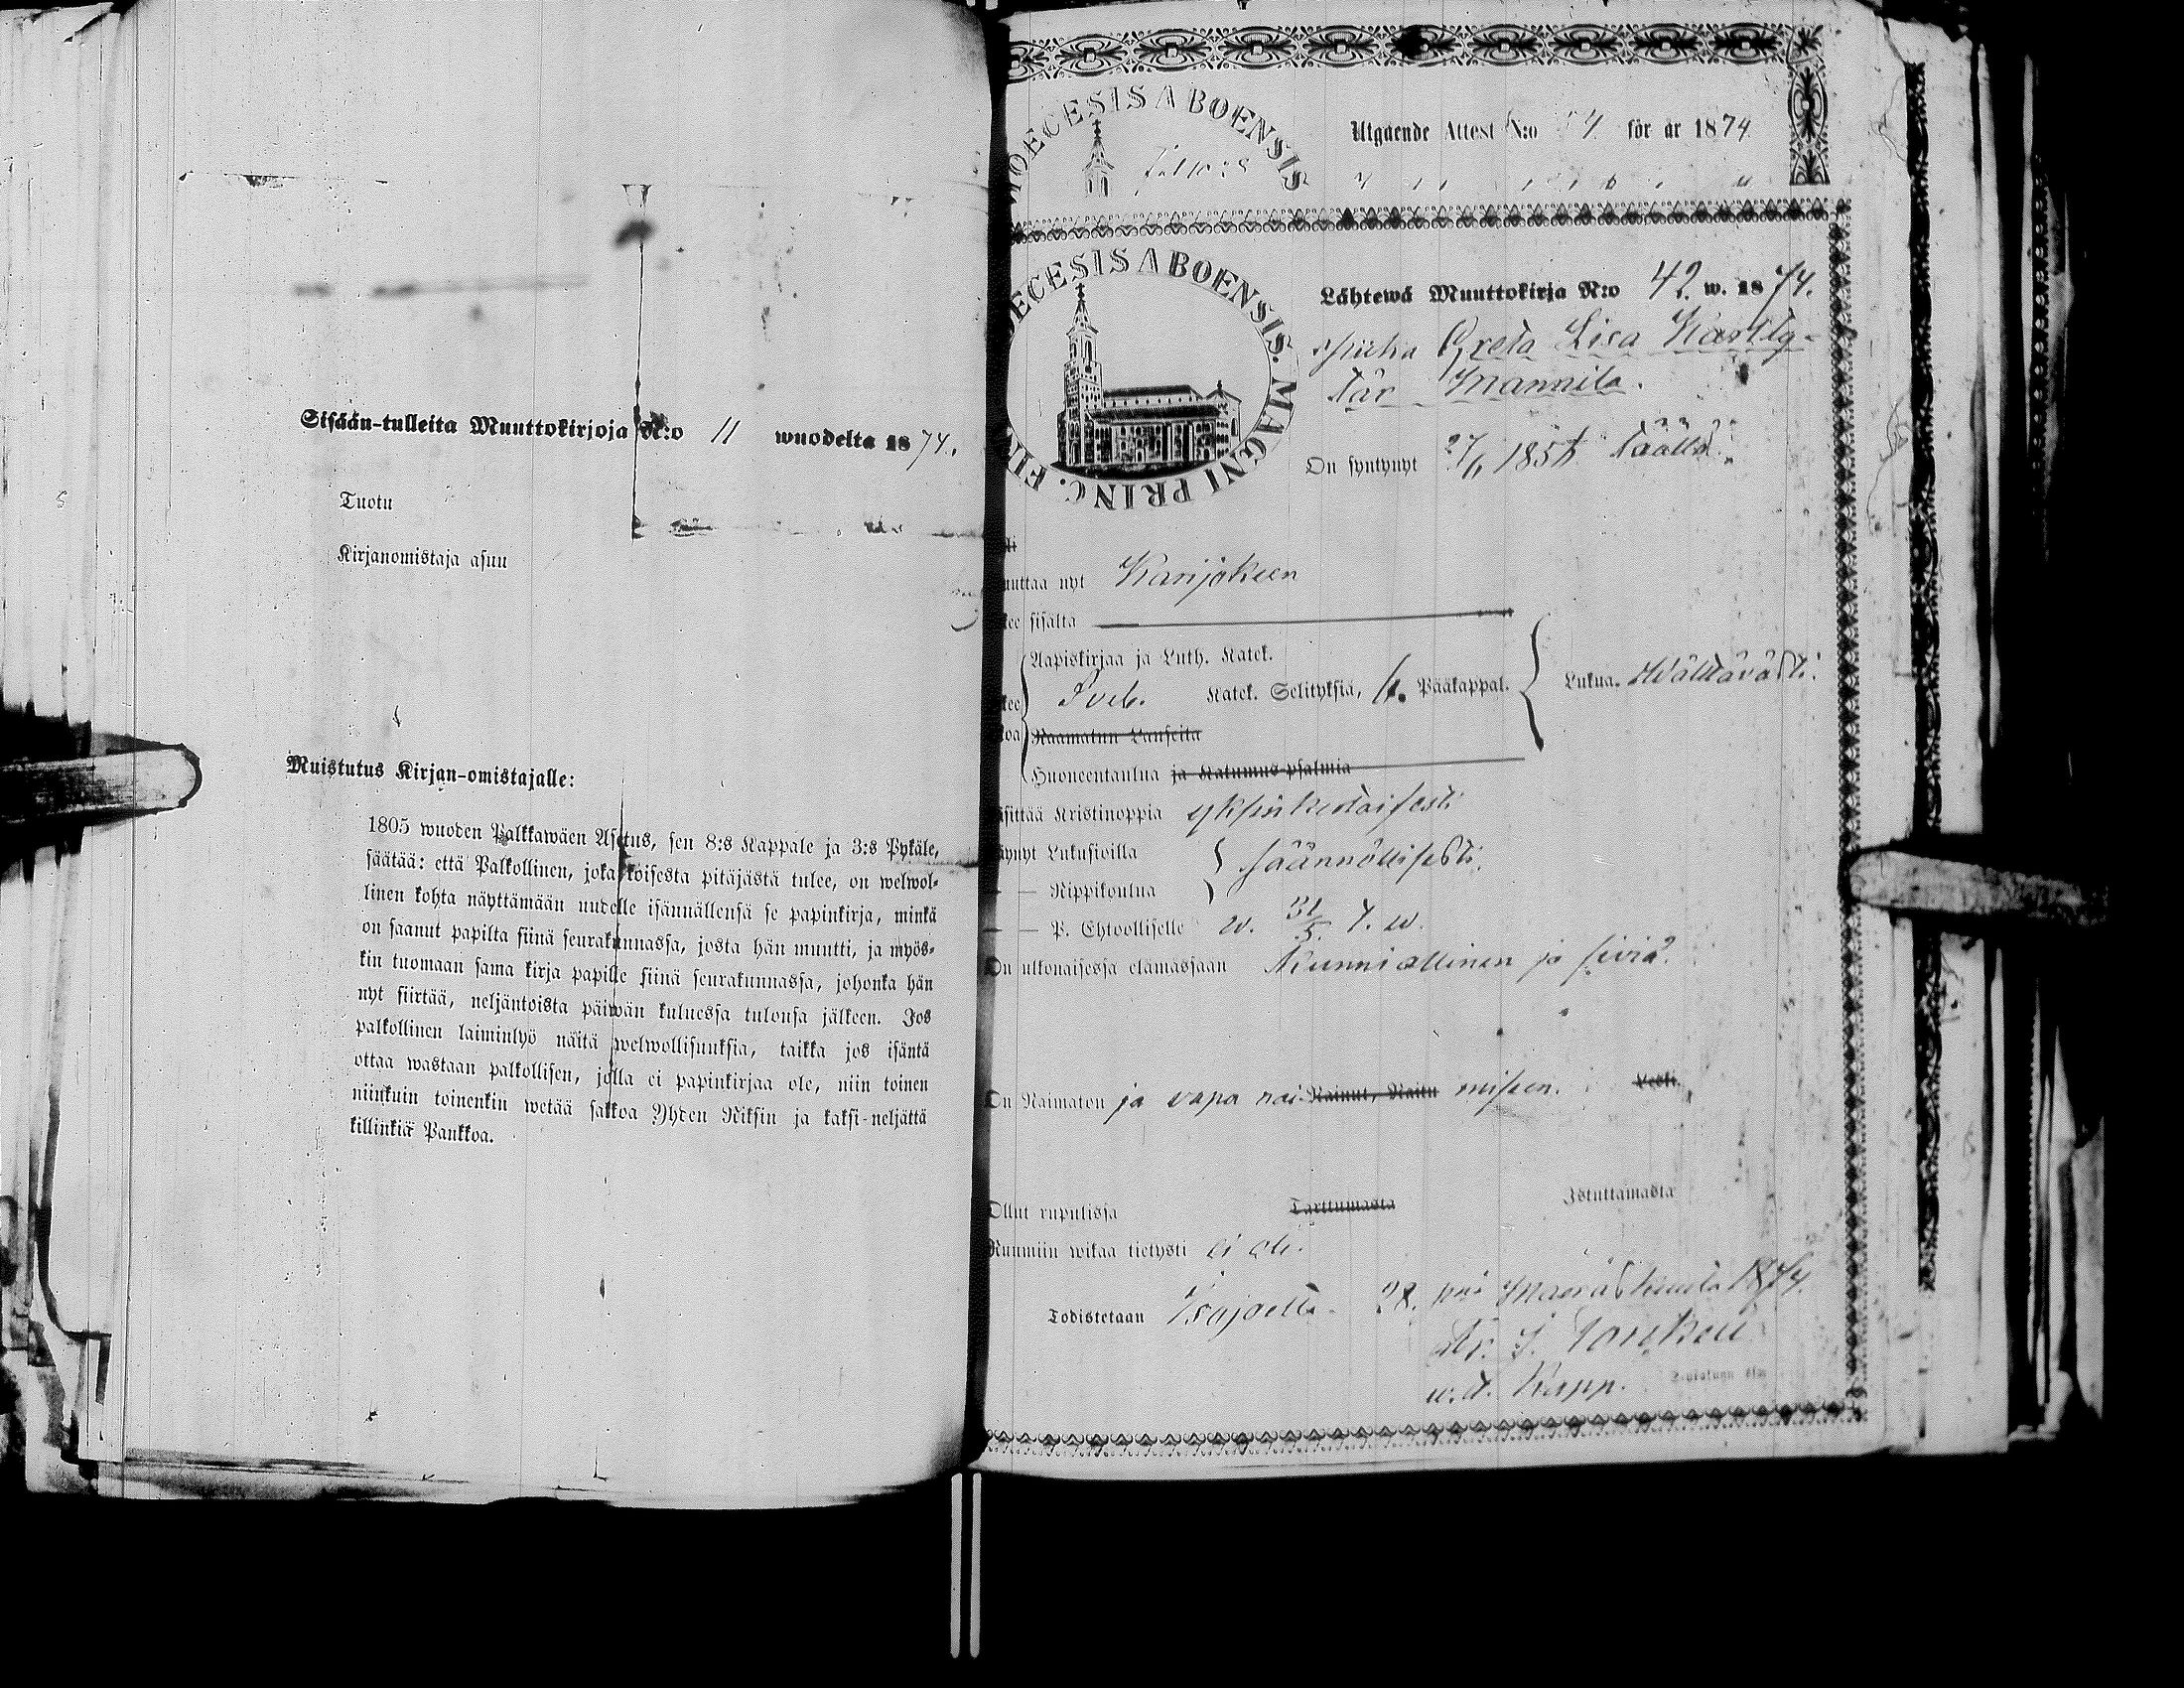 Sisään-tulleita Muuttokirjoja N:o 11 wuodelta 1874.
Tuotu
Kirjanomistaja asuu
Muistutus Kirjan-omistajalle:
1805 wuoden Palkkawäen Asetus, sen 8:s Kappale ja 3:s Pykäle,
säätää: että Palkollinen, joka toisesta pitäjästä tulee, on welwol-
linen kohta näyttämään uudelle isännällensä se papinkirja, minkä
on saanut papilta siinä seurakunnassa, josta hän muutti, ja myös-
kin tuomaan sama kirja papille siinä seurakunnassa, johonka hän
nyt siirtää, neljäntoista päiwän kuluessa tulonsa jälkeen. Jos
palkollinen laiminlyö näitä welwollisuuksia, taikka jos isäntä
ottaa wastaan palkollisen, jolla ei papinkirjaa ole, niin toinen
niinkuin toinenkin wetää sakkoa Yhden Riksin ja kaksi-neljättä
killinkiä Pankkoa.
DIOECESIS ABOENSIS
Utgaende Attest N:o för år 1874
DIOECESIS ABOENSIS. MAGNI PRINC. FIN
Lähtewä Muuttokirja N:o 42. w. 1874.
Greta Lisa
tär Mannila.
On syntynyt 185 täällä.
uuttaa nyt Karijokeen
kee sisältä
Aapiskirjaa ja Luth. Katek.
kee Sveb. Katek. Selityksiä, Pääkappal. Lukua. Wälttävästi.
koa Raamatun Lauseita
Huoneentaulua ja Katumus-psalmia
äsittää Kristinoppia yksinkertaisesti
äynyt Lukusioilla säännöllisesti.
— — Rippikoulua
— — P. Ehtoolliselle w. 31/5. t. w.
On ulkonaisessa elämässään Kunniallinen ja siviä.
On Naimaton ja vapa nai Nainut, Naitu miseen. Leski.
Ollut rupulissa Tarttumasta Istuttamasta
Ruumiin wikaa tietysti ei ole.
Todistetaan Isojoella 28. p:nä Marraskuuta 1874.
w.t. Kapp.